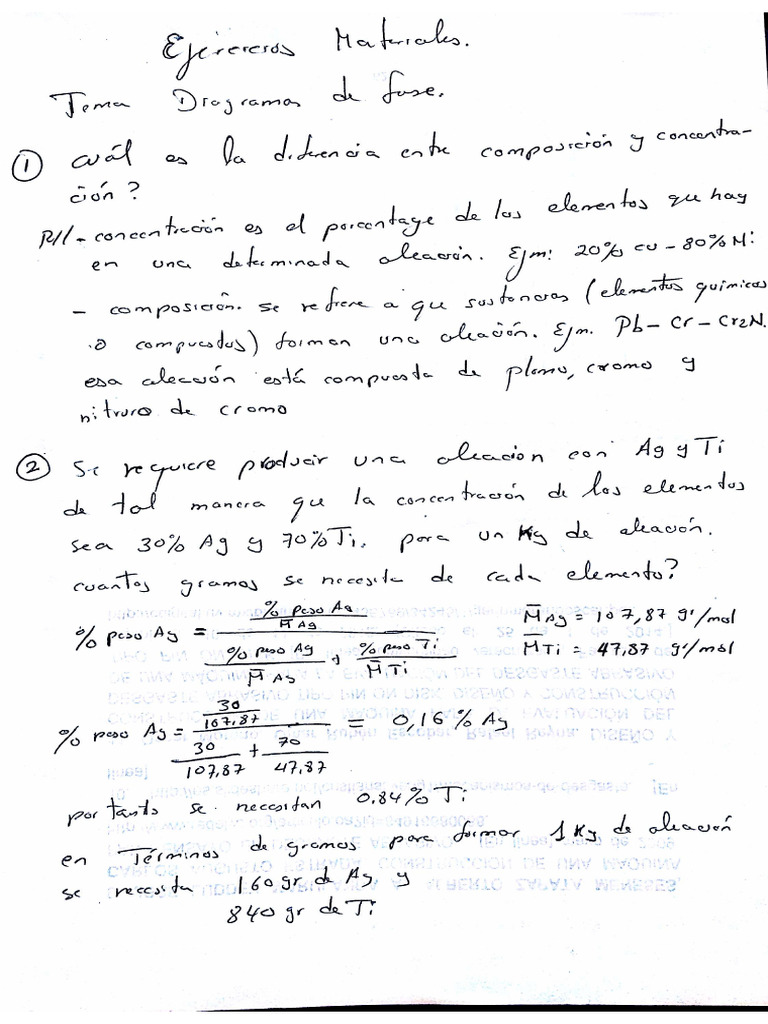 Ejercicios Materiales.
Tema Diagramas de fase.
① cuál es la diferencia entre composición y concentra-
ción?
R// - concentración es el porcentage de los elementos que hay
en una determinada aleación. Ejm: 20% cu - 80% Ni
- composición. se refiere a que sustancias (elementos químicos
o compuestos) forman una aleación. Ejm. Pb - Cr - Cr2N.
esa aleación está compuesta de plomo, cromo y
nitruro de cromo
② Se requiere producir una aleacion con Ag y Ti
de tal manera que la concentración de los elementos
sea 30% Ag y 70% Ti. para un Kg de aleación.
cuantos gramos se necesita de cada elemento?
% peso Ag = % peso Ag / M̄ Ag / % peso Ag / M̄ Ag + % peso Ti / M̄ Ti
M̄ Ag = 107,87 gr/mol
M̄ Ti = 47,87 gr/mol
% peso Ag = 30 / 107,87 / 30 / 107,87 + 70 / 47,87 = 0,16 % Ag
por tanto se necesitan 0.84% Ti
en Términos de gramos para formar 1 Kg de aleación
se necesita 160 gr de Ag y
840 gr de Ti